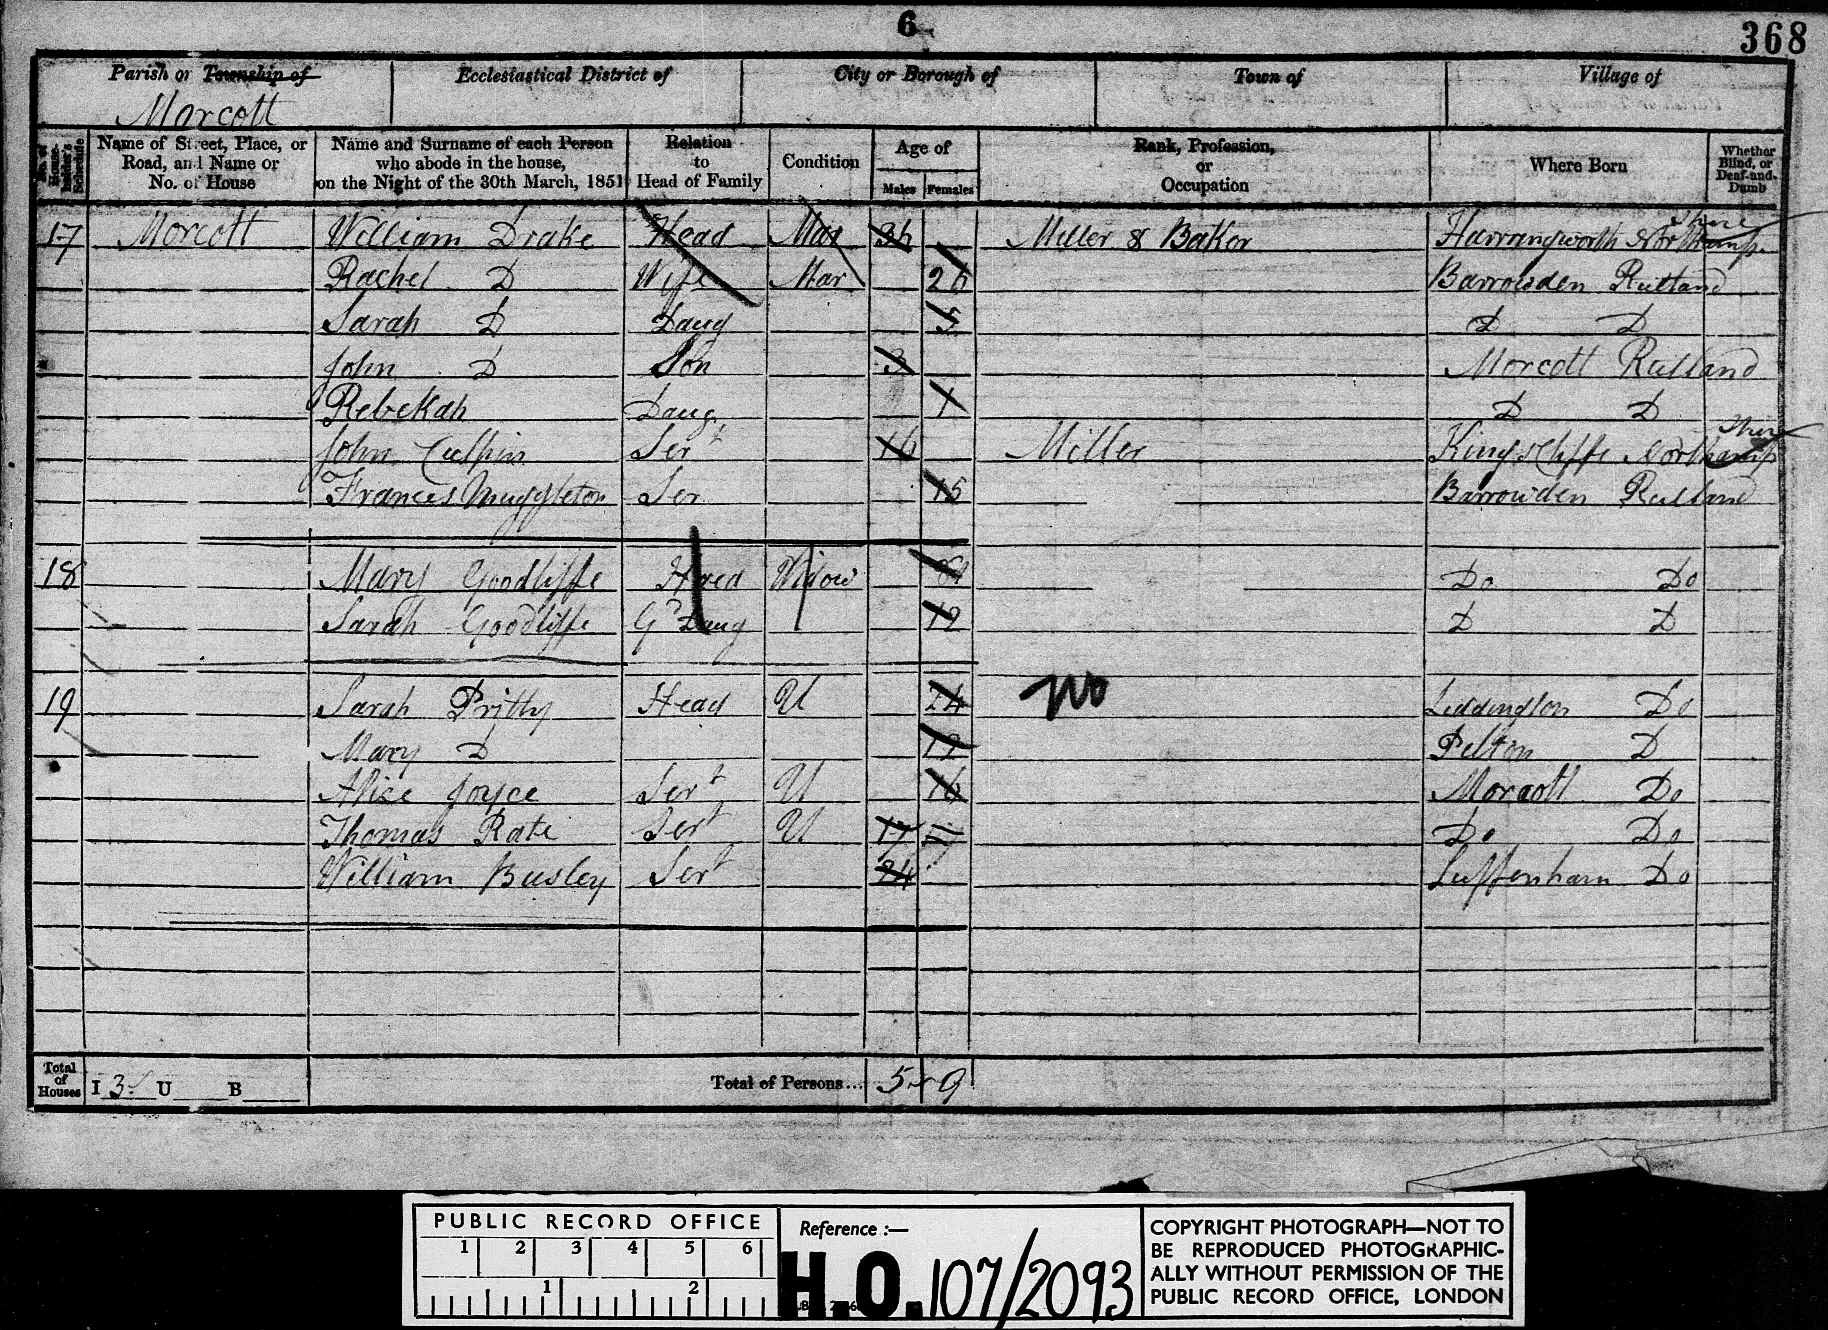 6
368
Parish or Township of Ecclesiastical District of City or Borough of Town of Village of
Morcott
No. of House-holder's Schedule
Name of Street, Place, or Road, and Name or No. of House
Name and Surname of each Person who abode in the house, on the Night of the 30th March, 1851
Relation to Head of Family
Condition
Age of
Males Females
Rank, Profession, or Occupation
Where Born
Whether Blind, or Deaf-and-Dumb
17 Morcott William Drake Head Mar 36 Miller & Baker Harrangworth Northampshire
Rachel D Wife Mar 26 Barrowden Rutland
Sarah D Daug 5 D D
John D Son 3 Morcott Rutland
Rebekah Daug 1 D D
John Culpin Sert 16 Miller Kings Cliffe Northampshire
Frances Muggleton Ser 15 Barrowden Rutland
18 Mary Goodliffe Head Widow Do Do
Sarah Goodliffe Gd Daug 12 D D
19 Sarah Pritty Head U 24 No Liddington Do
Mary D 12 Pelton D
Alice Joyce Sert U 16 Morcott Do
Thomas Rate Sert U 17 Do Do
William Busley Sert 24 Luffenham Do
Total of Houses I 3 U B Total of Persons... 5 9
PUBLIC RECORD OFFICE
1 2 3 4 5 6
1 2
Reference :—
H.O. 107/2093
COPYRIGHT PHOTOGRAPH—NOT TO
BE REPRODUCED PHOTOGRAPHIC-
ALLY WITHOUT PERMISSION OF THE
PUBLIC RECORD OFFICE, LONDON